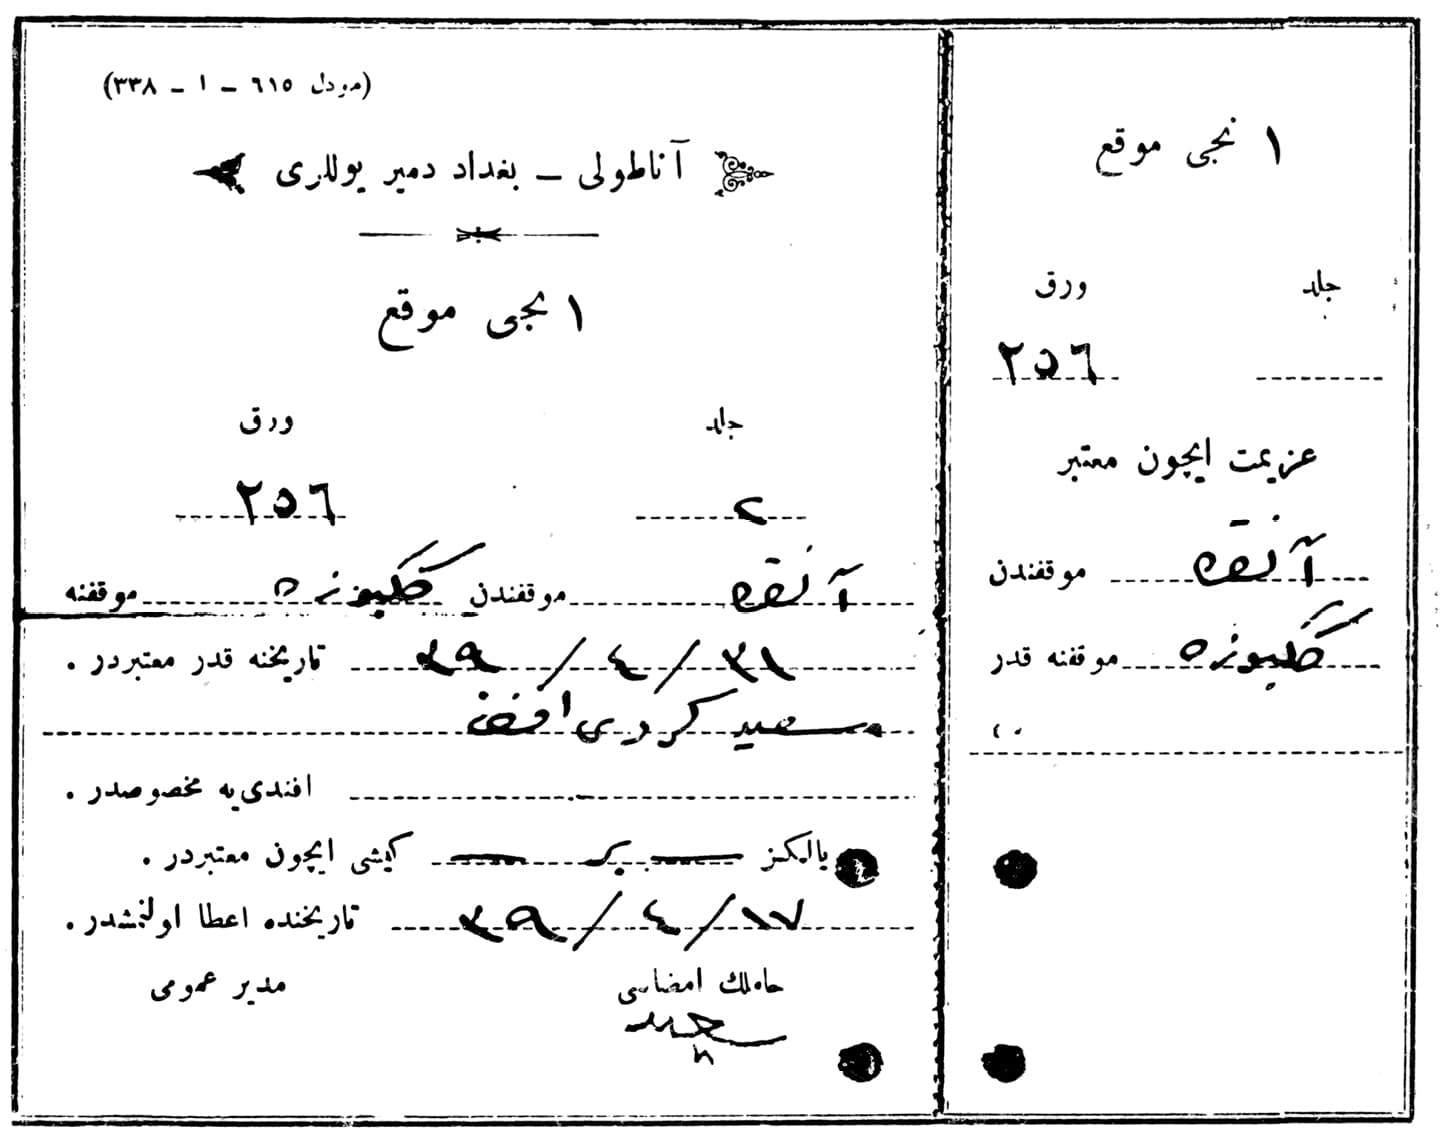 (مودل ٦١٥ – ١ – ٣٣٨)
آناطولی – بغداد دمیر یوللری
١ نجی موقع
جلد ورق
٢ ٢٥٦
آنقره موقفندن ككبوزه موقفنه
٣١ / ٤ / ٣٩ تاریخنه قدر معتبردر .
سعید كردی افندی
افندی‌یه مخصوصدر .
یالكز — بر — كیشی ایچون معتبردر .
١٧ / ٤ / ٣٩ تاریخنده اعطا اولنمشدر .
حاملك امضاسی مدیر عمومی
سعید
١ نجی موقع
جلد ورق
٢٥٦
عزیمت ایچون معتبر
آنقره موقفندن
ككبوزه موقفنه قدر